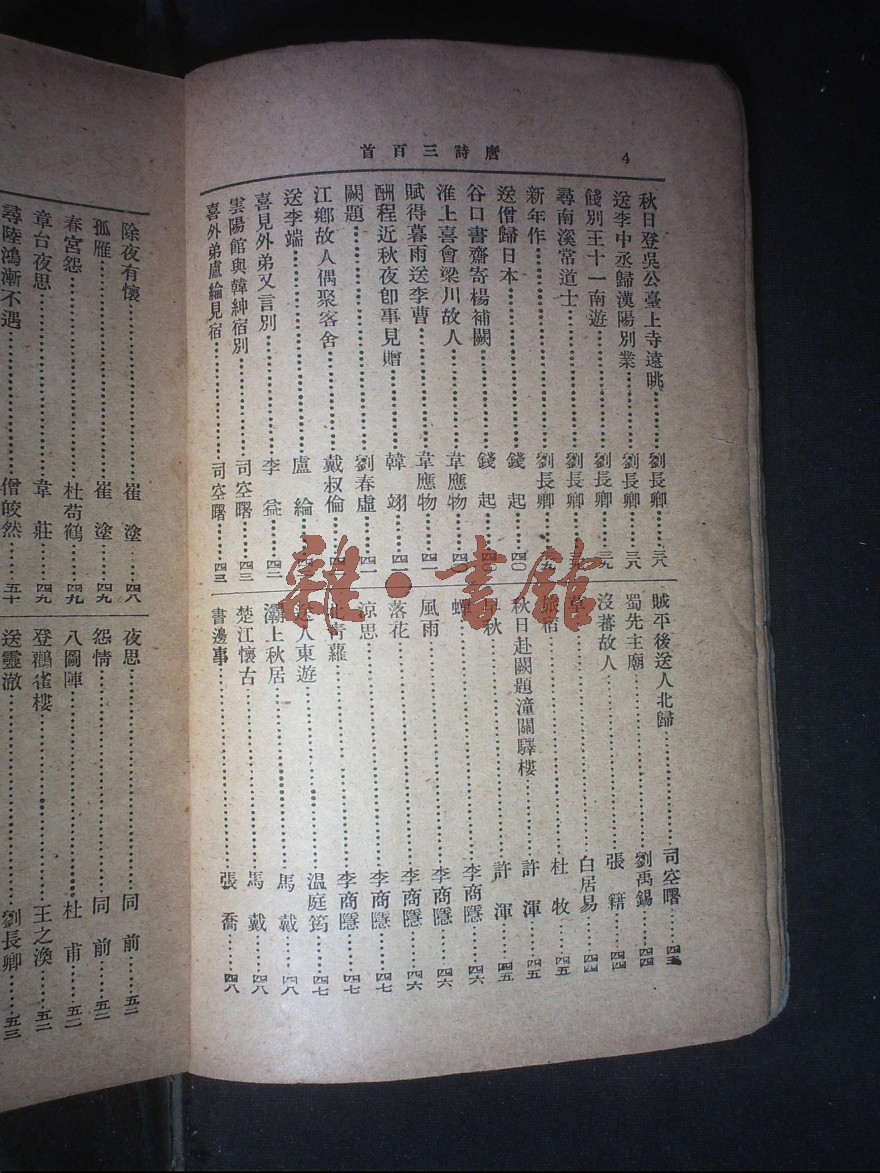 4 唐詩三百首
秋日登吳公臺上寺遠眺……劉長卿……三八
送李中丞歸漢陽別業……劉長卿……三八
餞別王十一南遊……劉長卿……三九
尋南溪常道士……劉長卿……三九
新年作……劉長卿……三九
送僧歸日本……錢起……四〇
谷口書齋寄楊補闕……錢起……四〇
淮上喜會梁川故人……韋應物……四〇
賦得暮雨送李曹……韋應物……四一
酬程近秋夜卽事見贈……韓翃……四一
闕題……劉眷虛……四一
江鄉故人偶聚客舍……戴叔倫……四
送李端……盧綸……四
喜見外弟又言別……李益……四二
雲陽館與韓紳宿別……司空曙……四三
喜外弟盧綸見宿……司空曙……四三
賊平後送人北歸……司空曙……四三
蜀先主廟……劉禹錫……四四
沒蕃故人……張籍……四四
草……白居易……四四
旅宿……杜牧……四五
秋日赴闕題潼關驛樓……許渾……四五
早秋……許渾……四五
蟬……李商隱……四六
風雨……李商隱……四六
落花……李商隱……四六
涼思……李商隱……四七
北青蘿……李商隱……四七
送人東遊……温庭筠……四七
灞上秋居……馬戴……四八
楚江懷古……馬戴……四八
書邊事……張喬……四八
除夜有懷……崔塗……四八
孤雁……崔塗……四九
春宮怨……杜荀鶴……四九
章台夜思……韋莊……四九
尋陸鴻漸不遇……僧皎然……五十
夜思……同前……五二
怨情……同前……五二
八圖陣……杜甫……五二
登鸛雀樓……王之渙……五二
送靈澈……劉長卿……五三
雜·書館